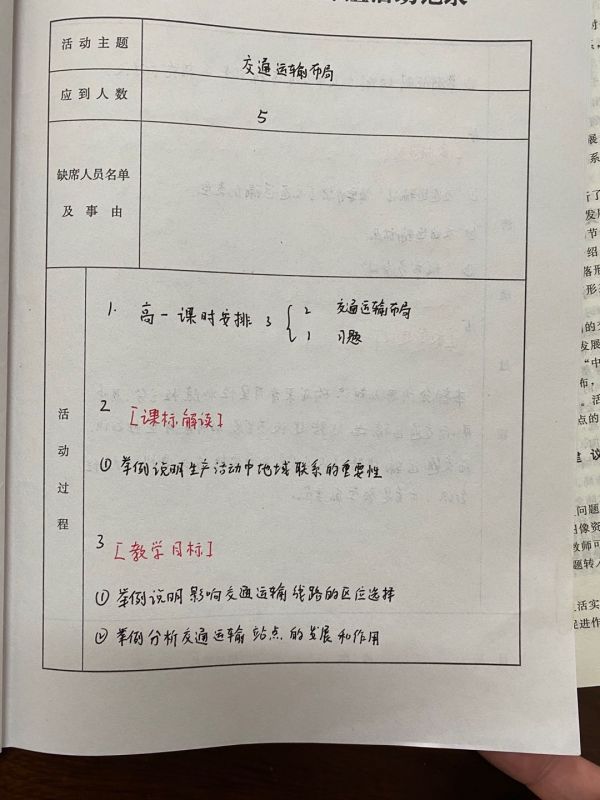 活动记录
活动主题 交通运输布局
应到人数 5
缺席人员名单
及事由
活动过程
1. 高一课时安排 3 { 2 交通运输布局
1 习题
2 [课标解读]
① 举例说明生产活动中地域联系的重要性
3 [教学目标]
① 举例说明影响交通运输线路的区位选择
② 举例分析交通运输站点的发展和作用